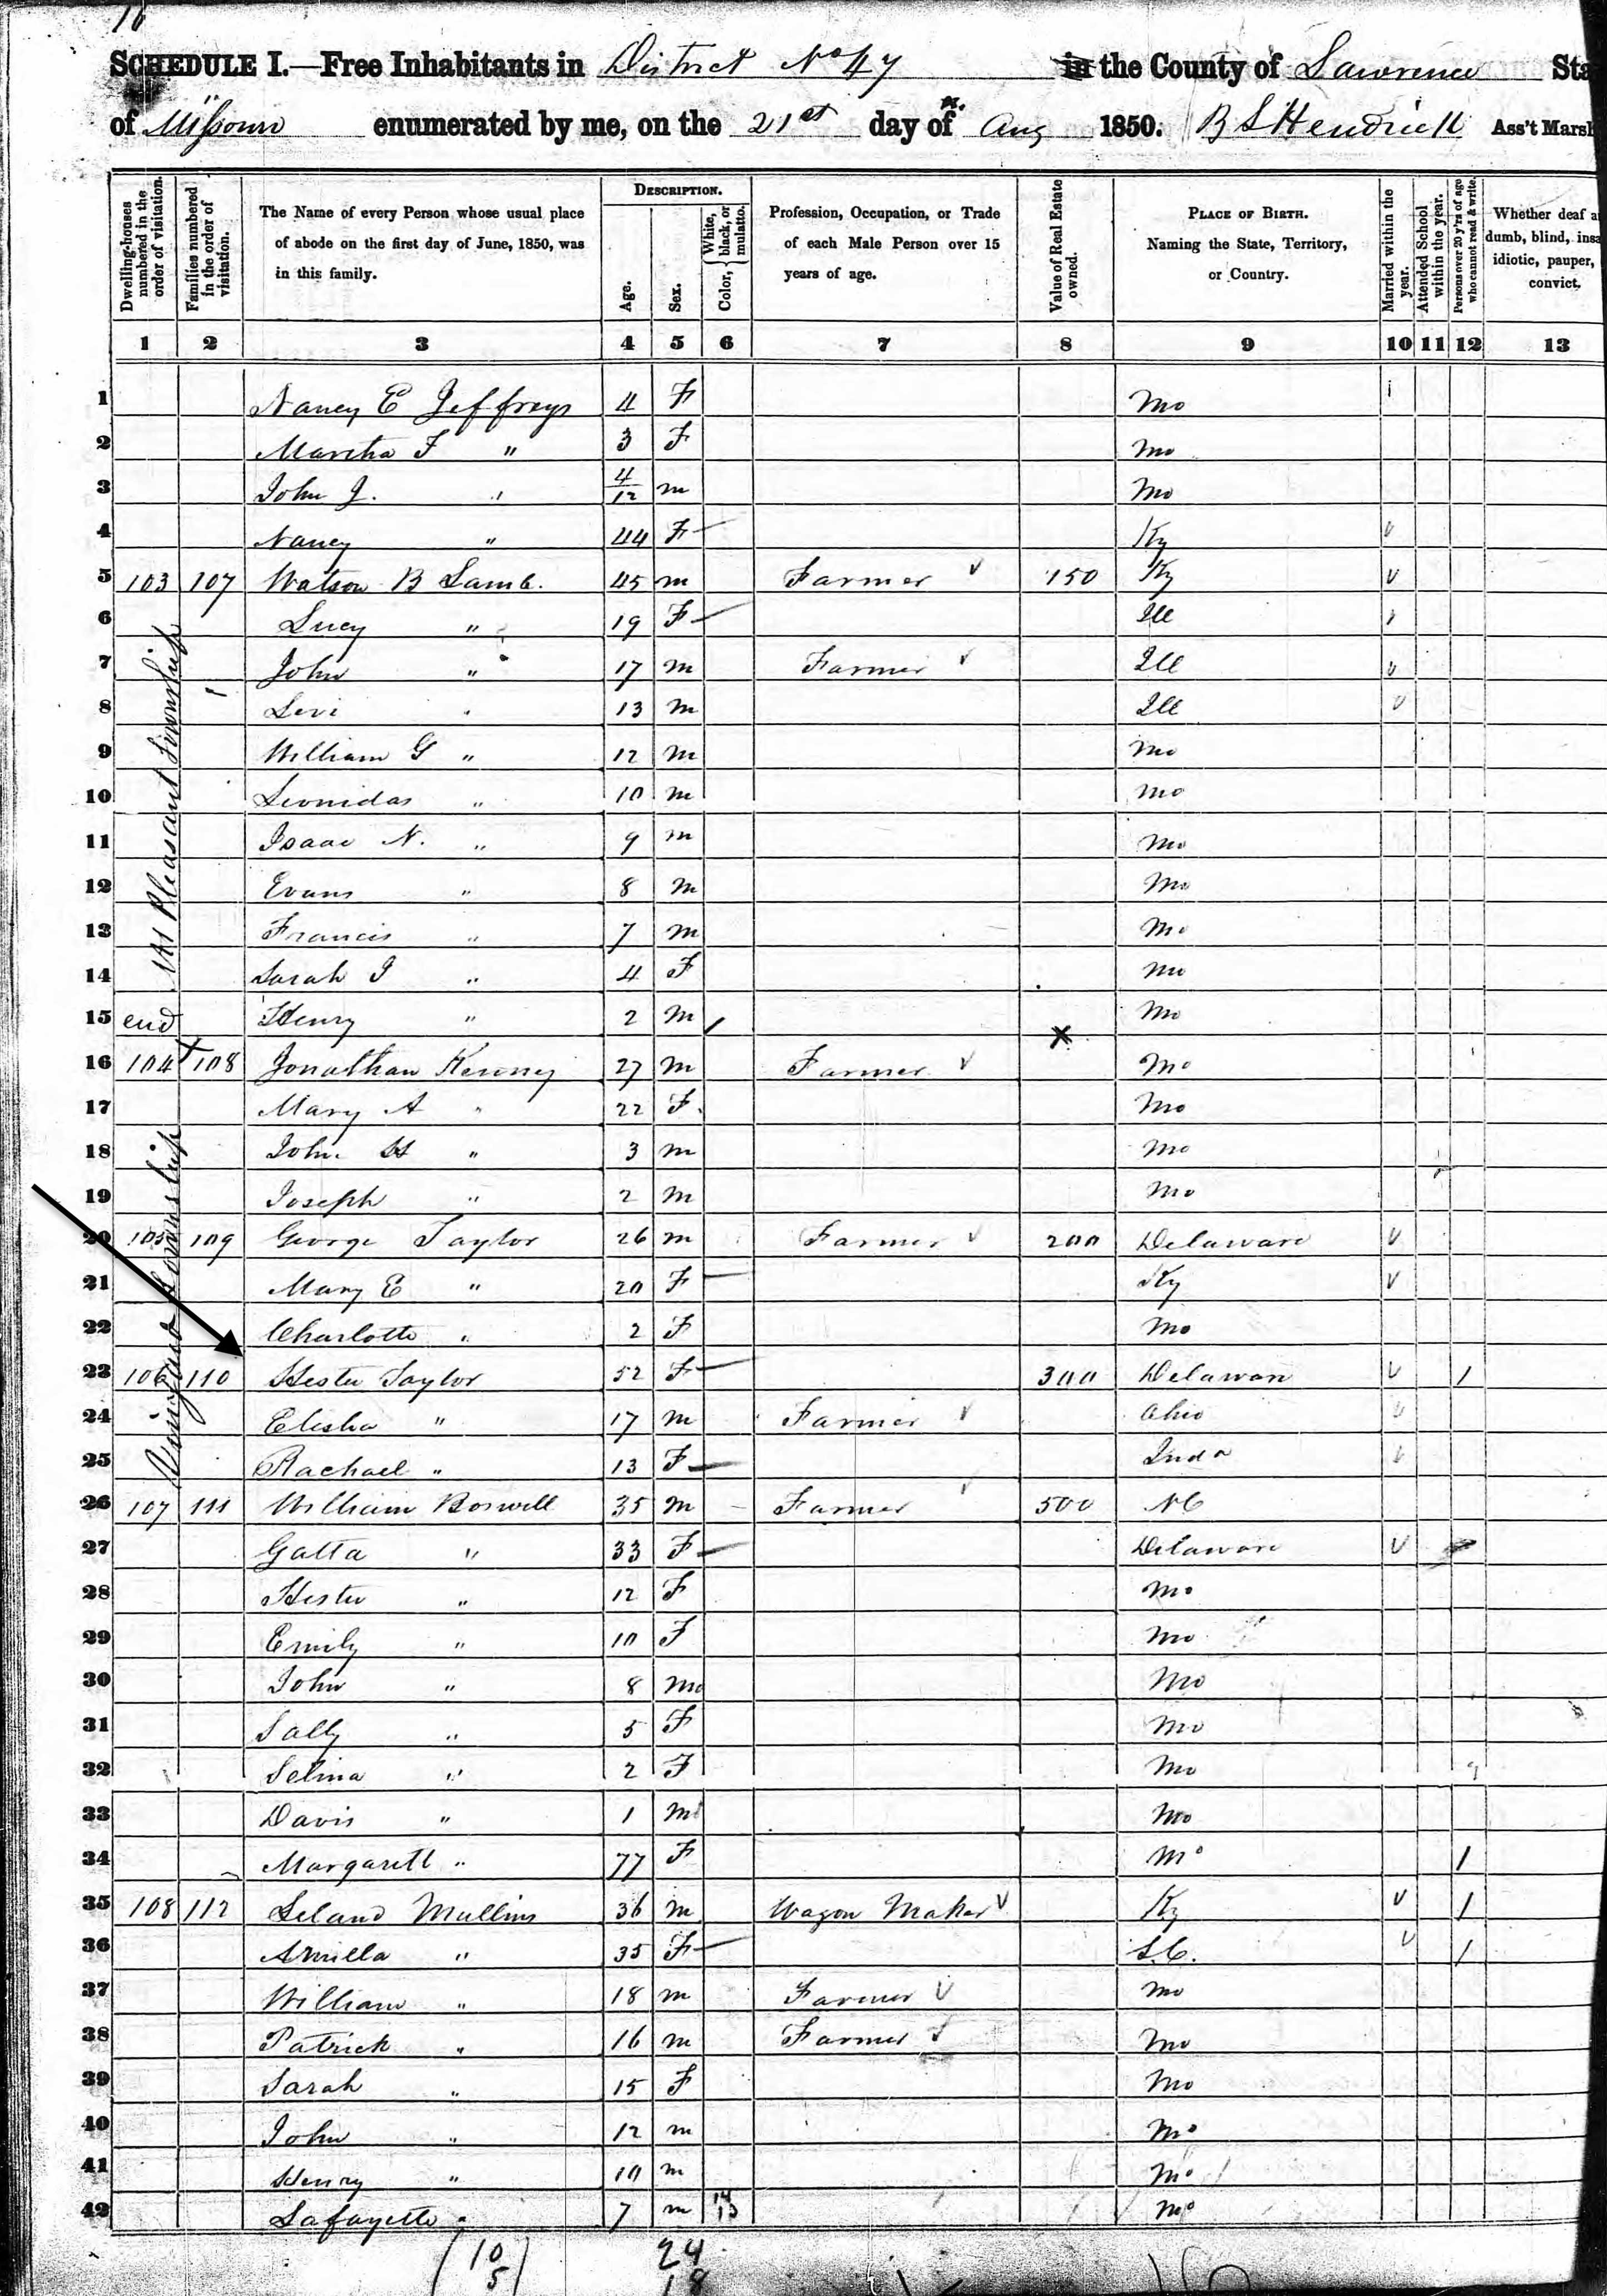 SCHEDULE I.—Free Inhabitants in District No 47 in the County of Lawrence Sta
of Missouri enumerated by me, on the 21st day of Aug 1850. B S Hendrick Ass't Marsh
Dwelling-houses numbered in the order of visitation.
Families numbered in the order of visitation.
The Name of every Person whose usual place of abode on the first day of June, 1850, was in this family.
DESCRIPTION.
Age.
Sex.
Color, { White, black, or mulatto.
Profession, Occupation, or Trade of each Male Person over 15 years of age.
Value of Real Estate owned.
PLACE OF BIRTH. Naming the State, Territory, or Country.
Married within the year.
Attended School within the year.
Persons over 20 y'rs of age who cannot read & write.
Whether deaf a dumb, blind, insa idiotic, pauper, convict.
1 2 3 4 5 6 7 8 9 10 11 12 13
1 Nancy E Jeffreys 4 F Mo
2 Martha F " 3 F Mo
3 John J. " 4/12 m Mo
4 Nancy " 44 F Ky
5 103 107 Watson B Lamb. 45 m Farmer 150 Ky
6 Lucy " 19 F Ill
7 John " 17 m Farmer Ill
8 Levi " 13 m Ill
9 William G " 12 m Mo
10 Leonidas " 10 m Mo
11 Isaac N. " 9 m Mo
12 Evans " 8 m Mo
13 Francis " 7 m Mo
14 Sarah J " 4 F Mo
15 end Henry " 2 m Mo
Mt Pleasant Township
16 104 108 Jonathan 27 m Farmer Mo
17 Mary A " 22 F Mo
18 John H " 3 m Mo
19 Joseph " 2 m Mo
20 105 109 George Taylor 26 m Farmer 200 Delaware
21 Mary E " 20 F Ky
22 Charlotte " 2 F Mo
23 106 110 Hester Taylor 52 F 300 Delaware 1
24 Elisha " 17 m Farmer Ohio
25 Rachael " 13 F Inda
Township
26 107 111 William Boswell 35 m Farmer 500 NC
27 Gatta " 33 F Delaware
28 Hester " 12 F Mo
29 Emily " 10 F Mo
30 John " 8 m Mo
31 Sally " 5 F Mo
32 Selina " 2 F Mo
33 Davis " 1 m Mo
34 Margarett " 77 F Mo 1
35 108 112 Leland Mullins 36 m Wagon Maker Ky 1
36 " 35 F S.C. 1
37 William " 18 m Farmer Mo
38 Patrick " 16 m Farmer Mo
39 Sarah " 15 F Mo
40 John " 12 m Mo
41 Henry " 10 m Mo
42 Lafayette " 7 m 14 13 Mo
10 24
5 18